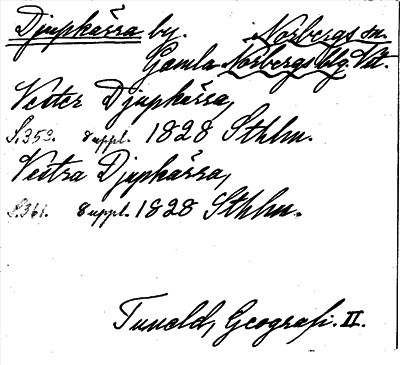 Djupkärra by. Norbergs sn.
Gamla Norbergs blg. Vstl.
Vester Djupkärra,
S. 353. 8 uppl. 1828 Sthlm.
Vestra Djupkärra,
S. 361. 8 uppl. 1828 Sthlm.
Tuneld, Geografi. II.